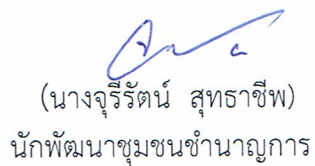 (นางจุรีรัตน์ สุทธาชีพ)
นักพัฒนาชุมชนชำนาญการ